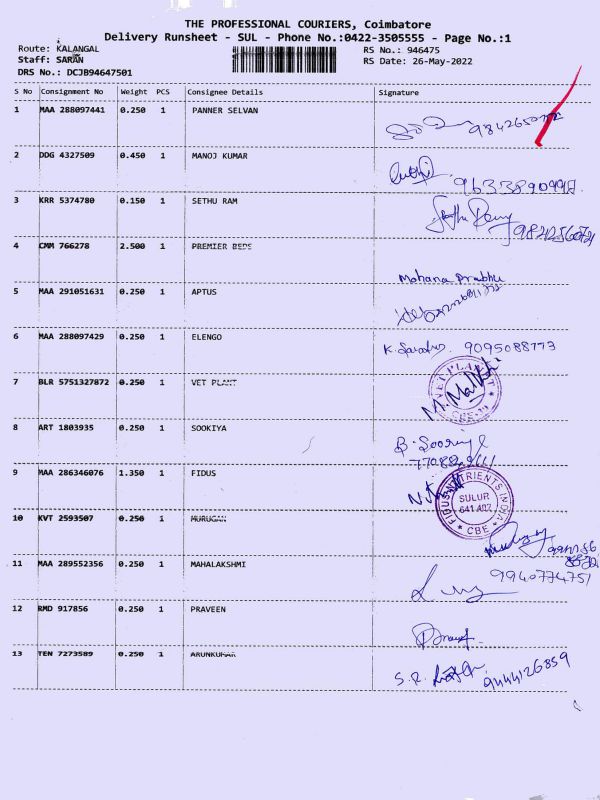 THE PROFESSIONAL COURIERS, Coimbatore
Delivery Runsheet - SUL - Phone No.:0422-3505555 - Page No.:1
Route: KALANGAL RS No.: 946475
Staff: SARAN RS Date: 26-May-2022
DRS No.: DCJB94647501
S No Consignment No Weight PCS Consignee Details Signature
1 MAA 288097441 0.250 1 PANNER SELVAN
2 DDG 4327509 0.450 1 MANOJ KUMAR
9633890998
3 KRR 5374780 0.150 1 SETHU RAM
4 CMM 766278 2.500 1 PREMIER BEDS
Mohana Prabhu
5 MAA 291051631 0.250 1 APTUS
6 MAA 288097429 0.250 1 ELENGO
K. 9095088773
7 BLR 5751327872 0.250 1 VET PLANT
VET PLANT
CBE
8 ART 1803935 0.250 1 SOOKIYA
9 MAA 286346076 1.350 1 FIDUS
FIDUS NUTRIENTS INDIA
SULUR
641 402
CBE
10 KVT 2593507 0.250 1 MURUGAN
11 MAA 289552356 0.250 1 MAHALAKSHMI
9940774751
12 RMD 917856 0.250 1 PRAVEEN
13 TEN 7273589 0.250 1 ARUNKUMAR
S.R. 9444126859